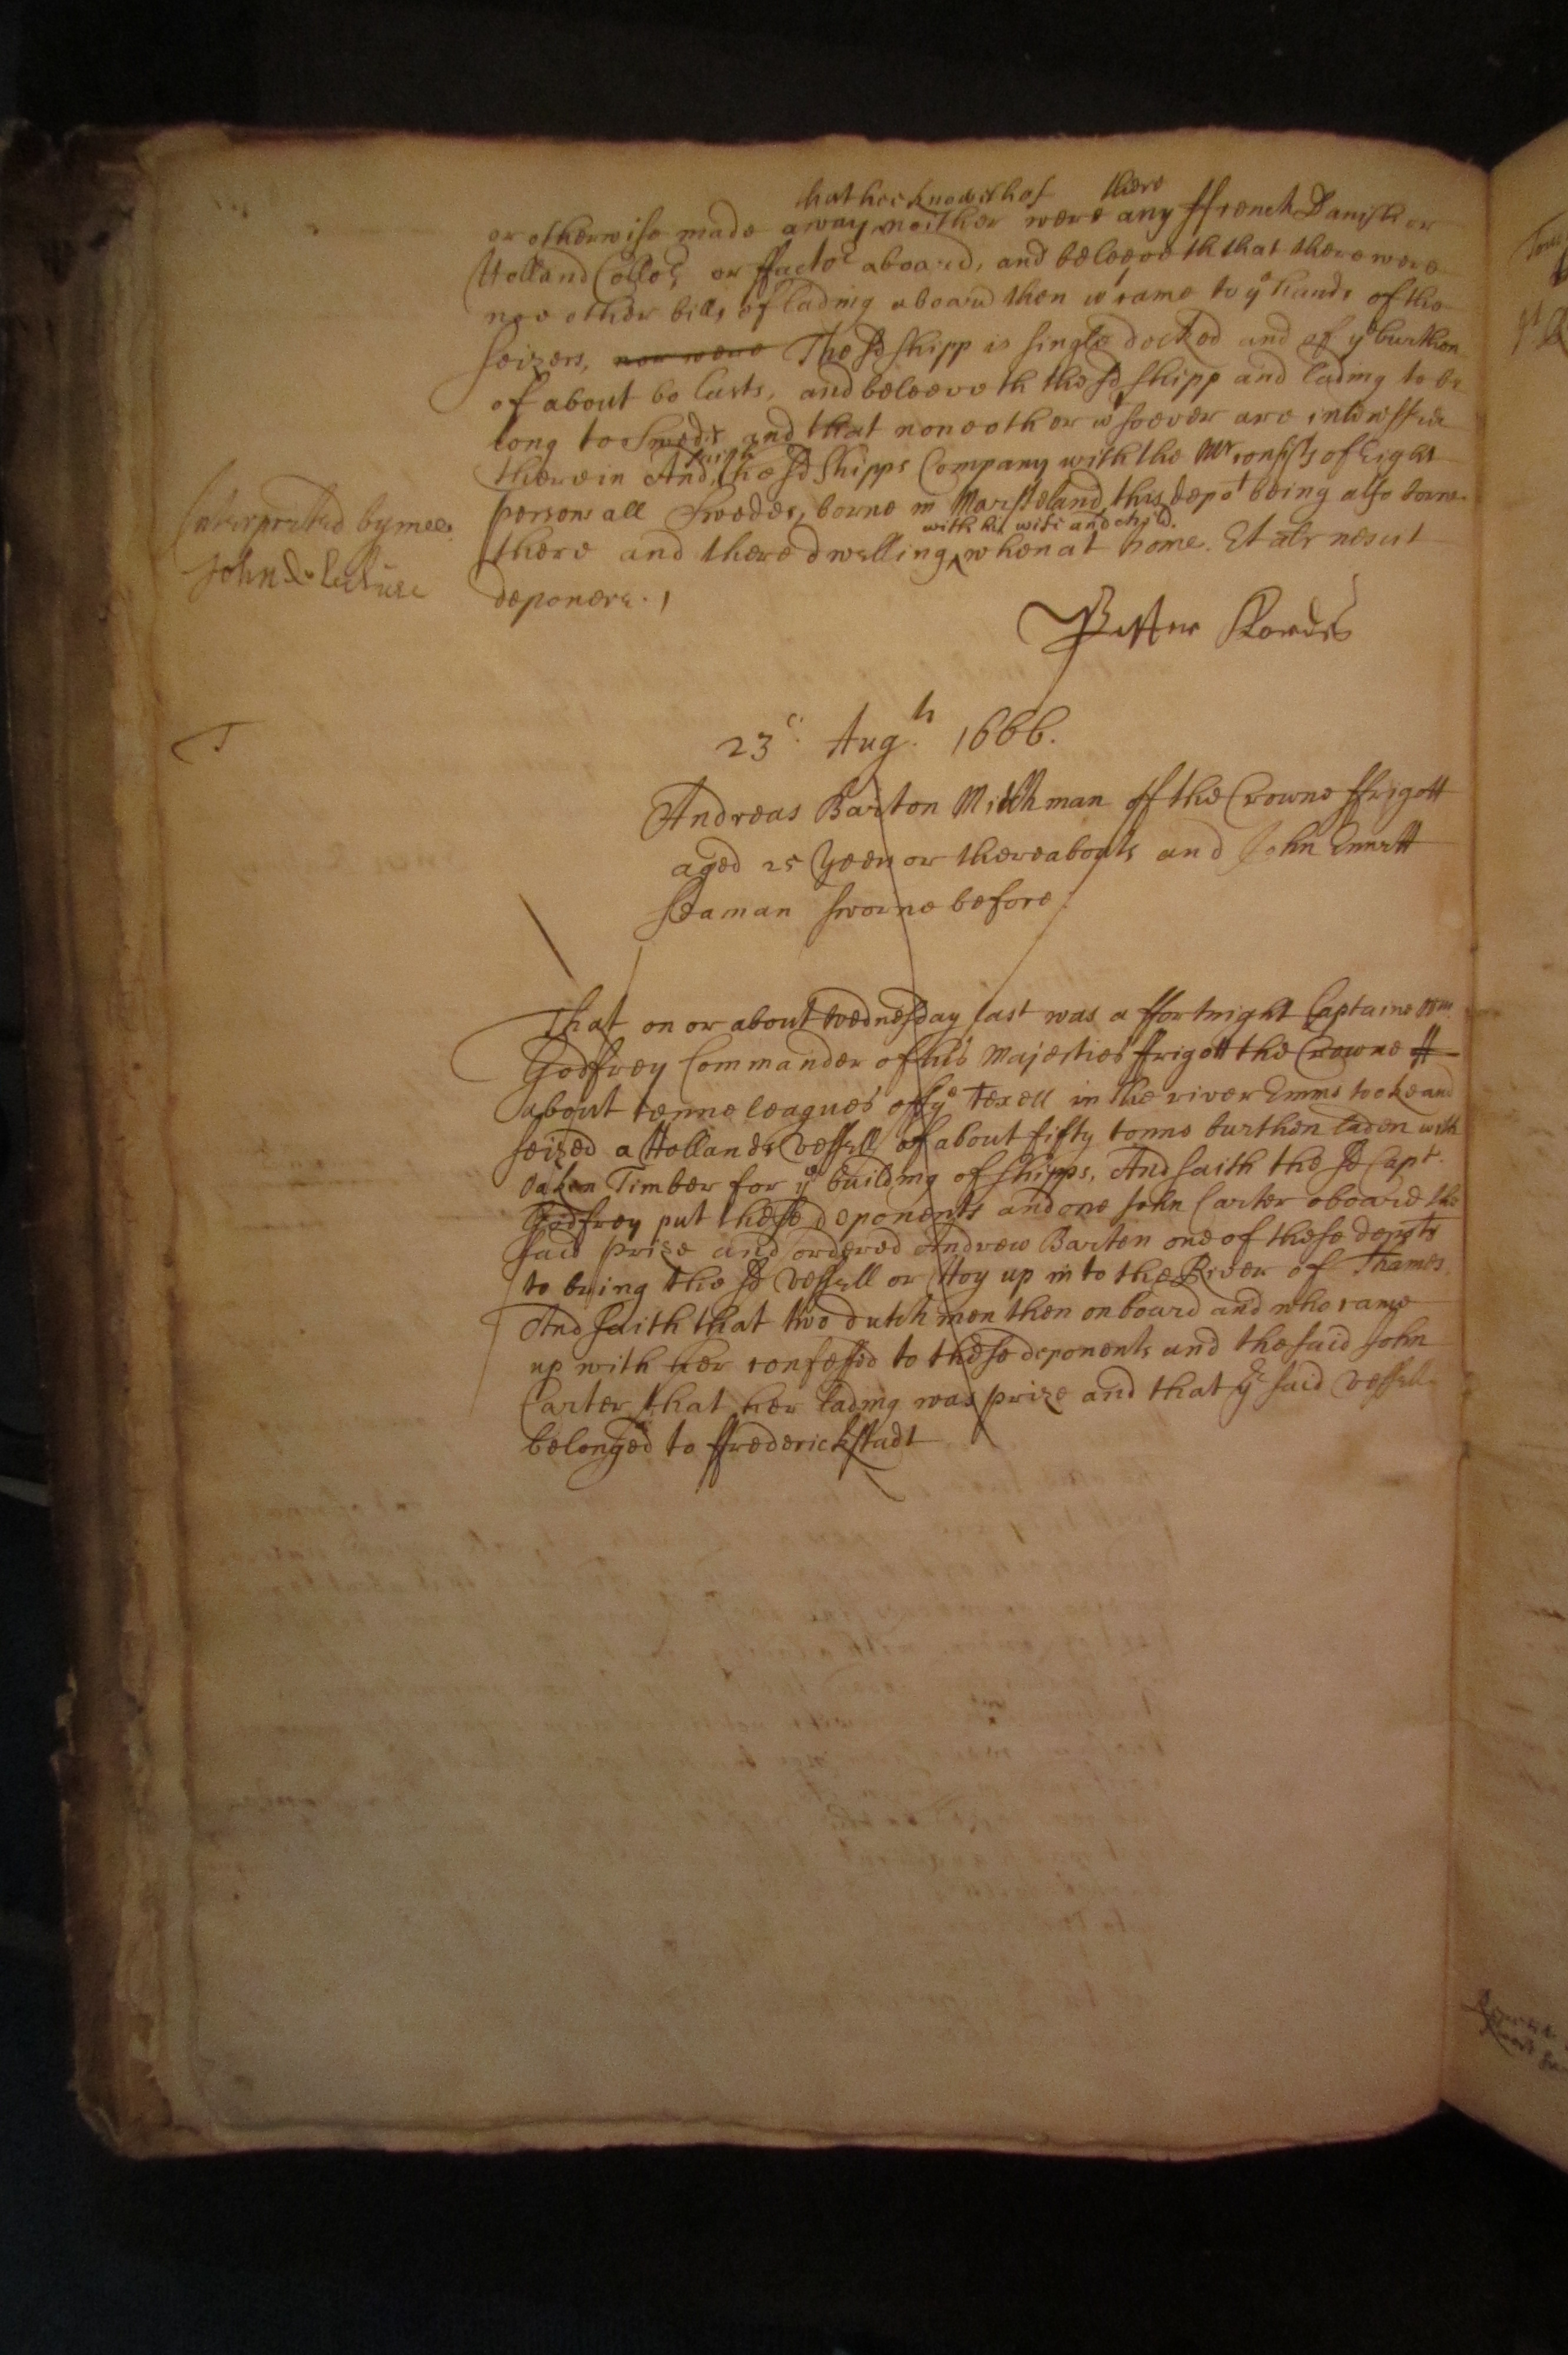 that hee knoweth of there
or otherwise made away neither were any ffrench Danish or
Holland Collo:rs or ffacto:rs aboard, and beleeveth that there were
noe other bills of lading aboard then wch came to ye hands of the
seizers, nor were The sd shipp is single decked and of ye burthen
of about 60 lasts, and beleeveth the sd shipp and lading to be
long to Swedes and that none other wtsoever are interessted
saith
therein And the sd shipps Company with the Mr consists of Eight
persons all Swedes, borne in Marsteland, this depot being also borne
with his wife and child.
there and there dwelling when at home. Et alr nescit
deponere.
Interpreted by mee
John
Pitter
23o Augti 1666.
Andreas Barton Midshman of the Crowne ffrigott
aged 25 yeers or thereabouts and John Emett
Seaman sworne before
That on or about Wednesday last was a ffortnight Captaine Wm.
Godfrey Commander of his Majesties ffrigott the Crowne
about tenne leagues off ye Texell in the river Emms tooke and
seized a Hollands vessell of about fifty tonns burthen laden with
Oaken Timber for ye building of shipps, And saith the sd Capt.
Godfrey put these deponents and one John Carter aboard the
said prize and ordered Andrew Barton one of these depnts
to bring the sd vessell or Hoy up in to the River of Thames
And saith that two dutch men then on board and who came
up with her confessed to these deponents and the said John
Carter that her lading was prize and that ye said vessell
belonged to ffrederickstadt